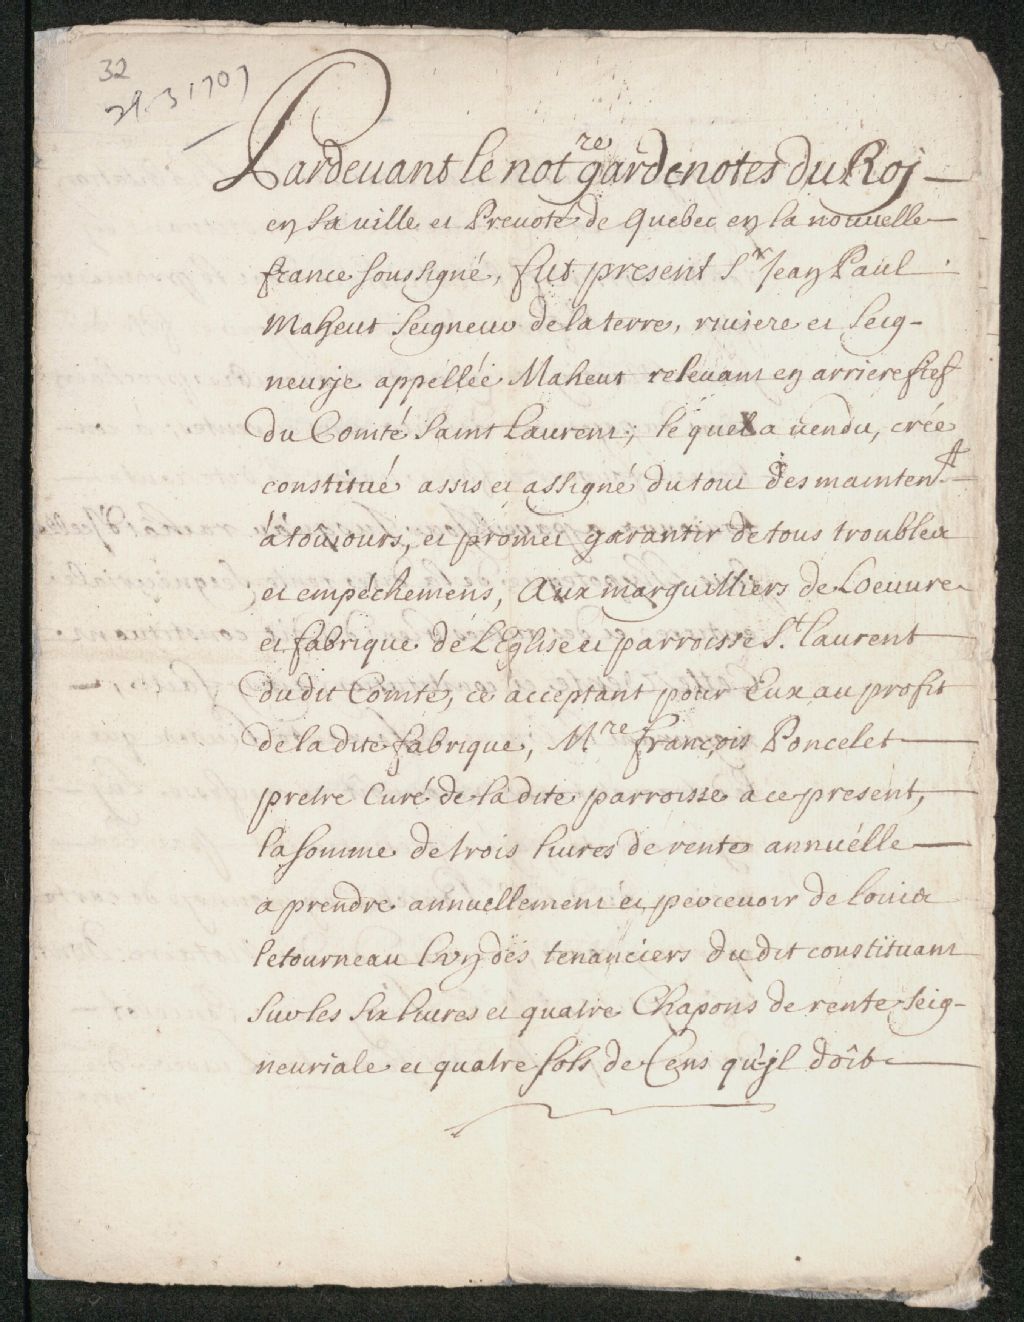 32
29-3 1707
Pardevant le not.re gardenotes du Roj
en sa ville et Prevoté de Quebec en la nouvelle
france soussigné, fut present S.r Jean Paul
Maheut Seigneur de la terre, riviere et Seig-
neurje appellée Maheut relevant en arriere fief
du Comté Saint Laurent; le quel a vendu, crée
constitué assis et assigné du tout des mainten.t
à toujours, et promet garantir de tous troubles
et empéchemens, Aux marguilliers de Loeuvre
et fabrique de L'Eglise et parroisse S.t Laurent
du dit Comté, ce acceptant pour Eux au profit
de la dite fabrique, M.re françois Poncelet
pretre Curé de la dite parroisse a ce present,
la somme de trois livres de rente annuélle
a prendre annuellement et percevoir de Louis
letourneau l'vn des tenanciers du dit constituant
sur les six livres et quatre Chapons de rente seig-
neuriale et quatre sols de Cens qu'jl doit